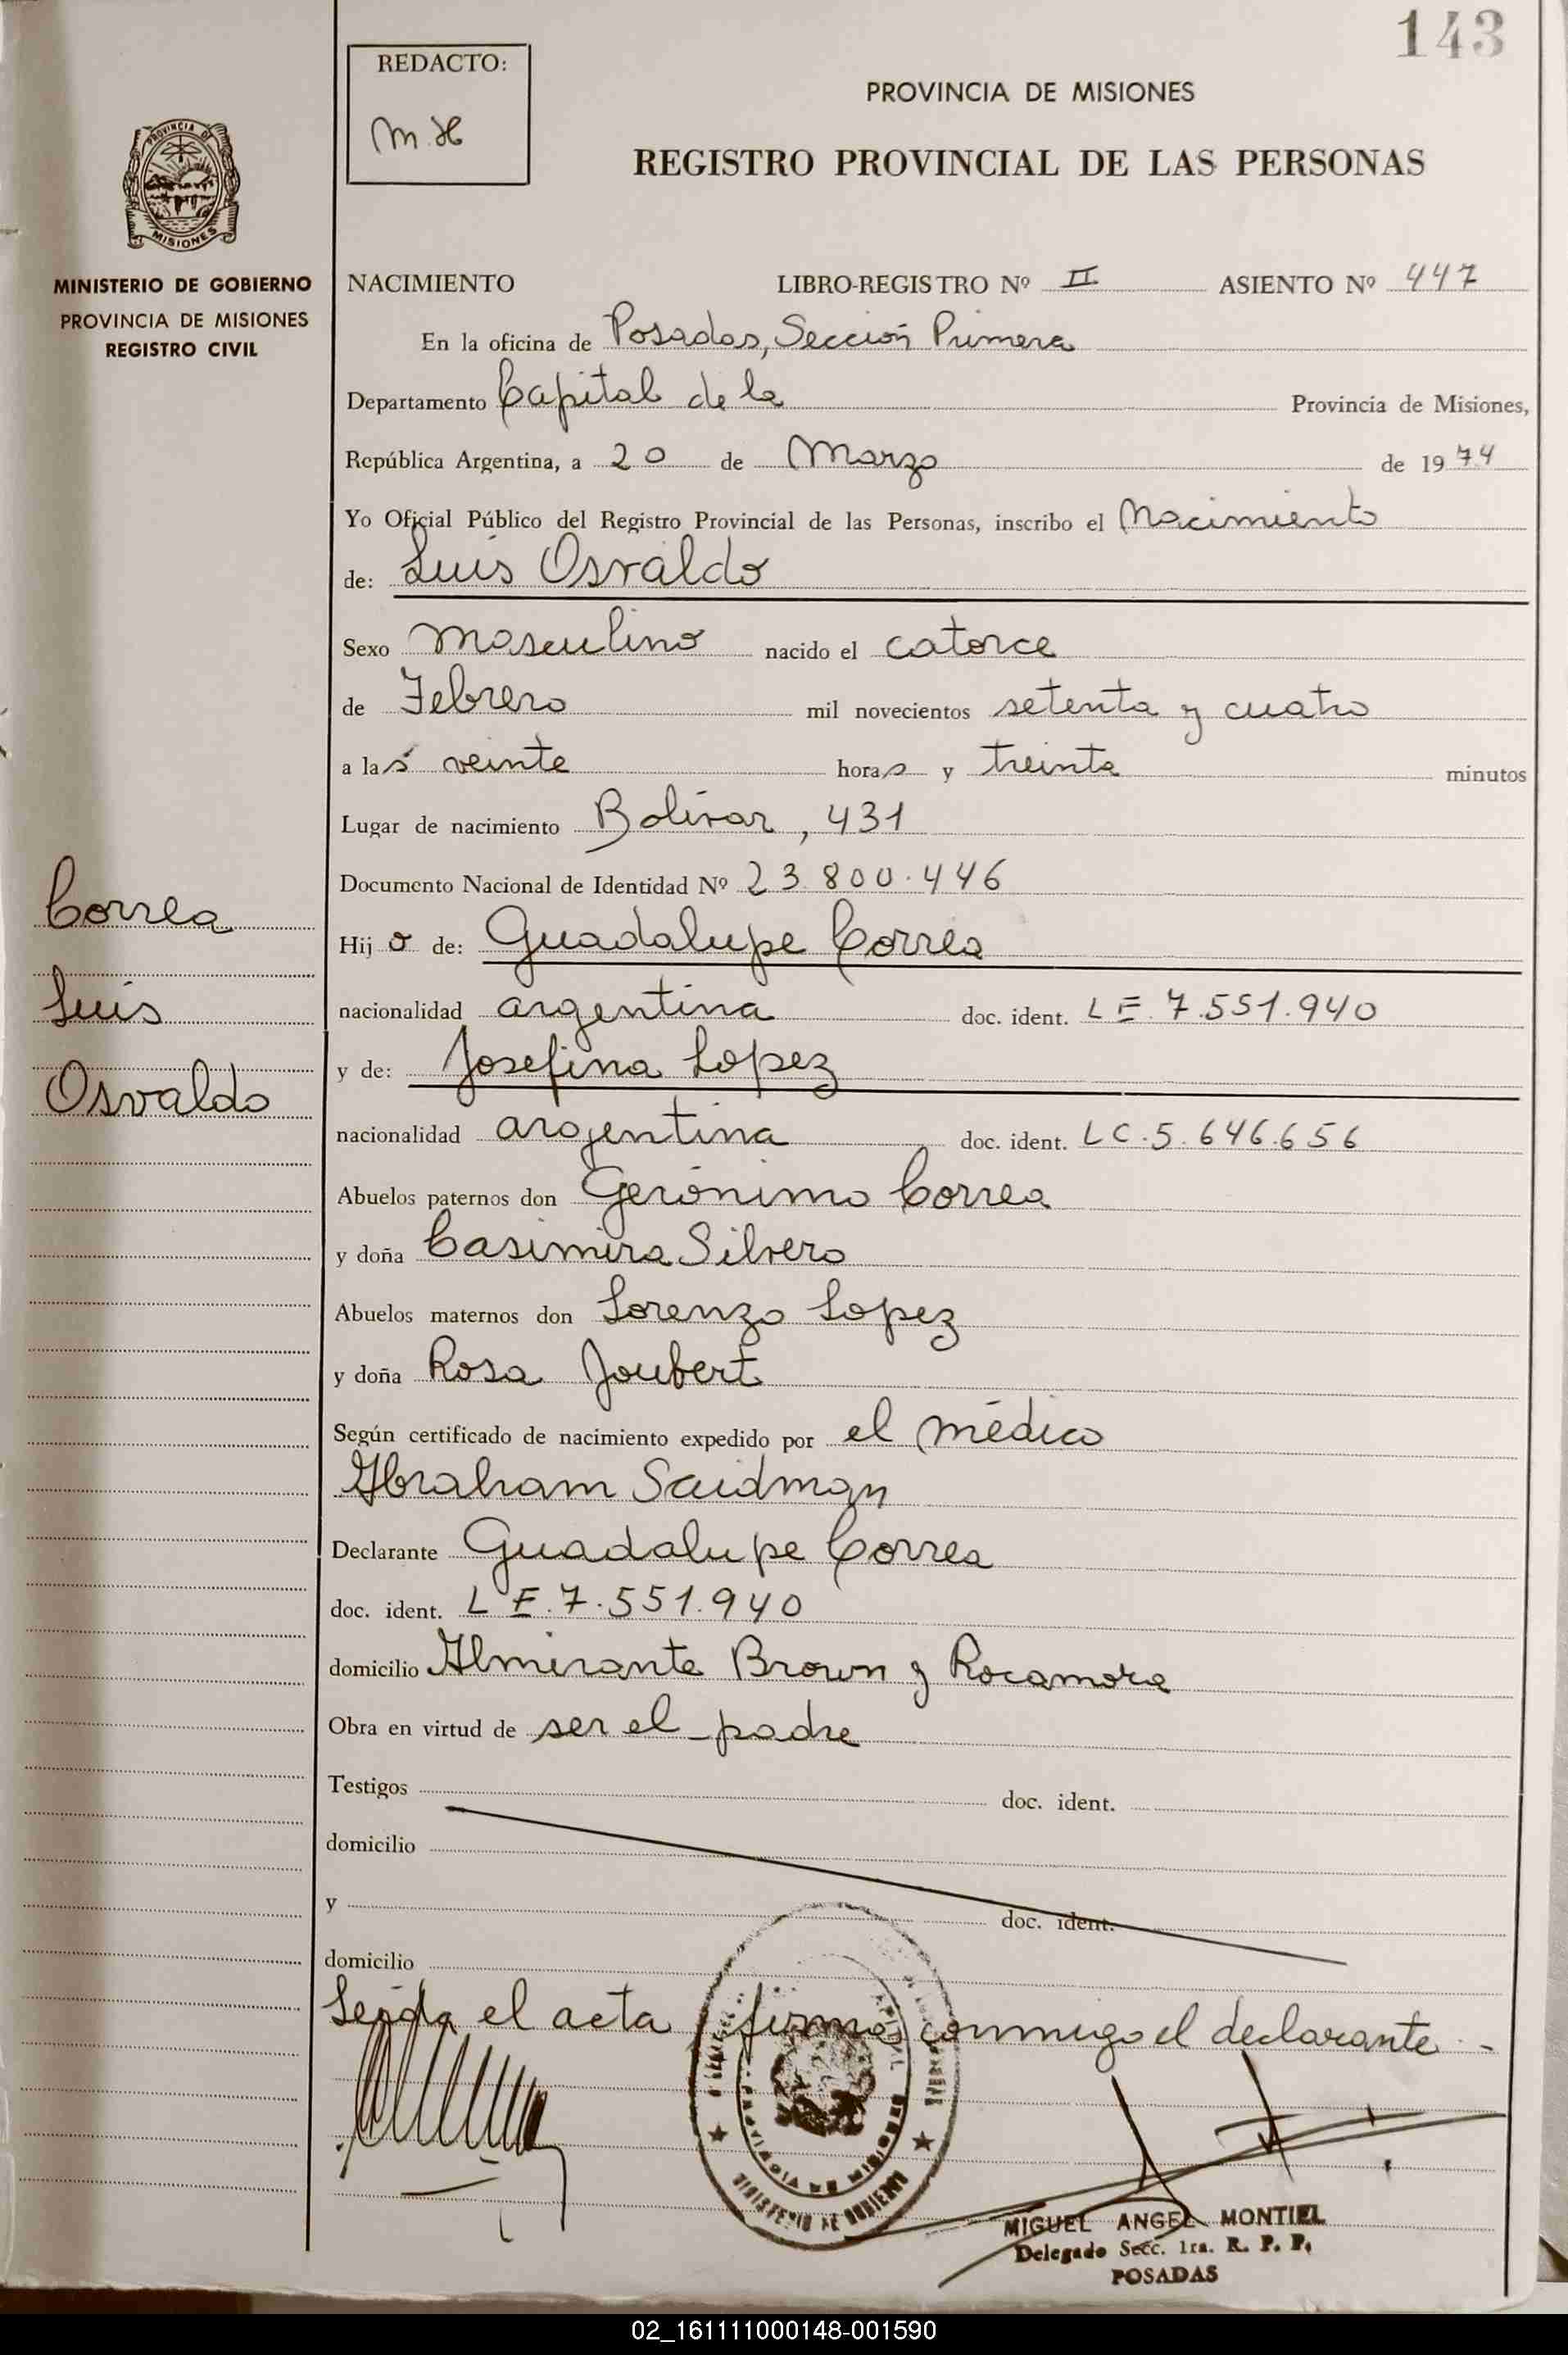 143
REDACTO:
M.H
PROVINCIA DE MISIONES
REGISTRO PROVINCIAL DE LAS PERSONAS
PROVINCIA DE
MISIONES
MINISTERIO DE GOBIERNO
PROVINCIA DE MISIONES
REGISTRO CIVIL
NACIMIENTO LIBRO-REGISTRO Nº II ASIENTO Nº 447
En la oficina de Posadas, Sección Primera
Departamento Capital de la Provincia de Misiones,
República Argentina, a 20 de Marzo de 1974
Yo Oficial Público del Registro Provincial de las Personas, inscribo el Nacimiento
de: Luis Osvaldo
Sexo Masculino nacido el catorce
de Febrero mil novecientos setenta y cuatro
a las veinte horas y treinta minutos
Lugar de nacimiento Bolívar, 431
Documento Nacional de Identidad Nº 23.800.446
Hijo de: Guadalupe Correa
nacionalidad argentina doc. ident. LE.7.551.940
y de: Josefina Lopez
nacionalidad argentina doc. ident. LC.5.646.656
Abuelos paternos don Gerónimo Correa
y doña Casimira Silvero
Abuelos maternos don Lorenzo Lopez
y doña Rosa Joubert
Según certificado de nacimiento expedido por el médico
Abraham Saidman
Declarante Guadalupe Correa
doc. ident. LE.7.551.940
domicilio Almirante Brown y Rocamora
Obra en virtud de ser el padre
Testigos doc. ident.
domicilio
y doc. ident.
domicilio
Leída el acta firma conmigo el declarante.-
Correa
Luis
Osvaldo
PROVINCIA DE MISIONES
MINISTERIO DE GOBIERNO
MIGUEL ANGEL MONTIEL
Delegado Secc. 1ra. R. P. P.
POSADAS
02_161111000148-001590